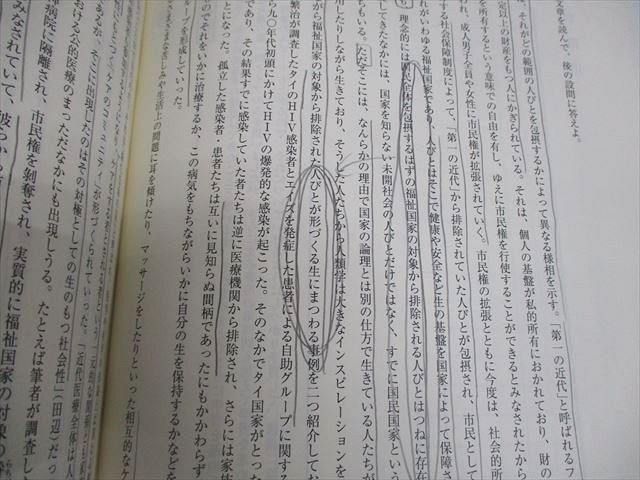 文章を読んで、後の設問に答えよ。
、それがどの範囲の人びとを包摂するかによって異なる様相を示す。「第一の近代」と呼ばれるフ
定以上の財産をもつ人にかぎられている。それは、個人の基盤が私的所有におかれており、財の
を所有するという意味での自由を有し、ゆえに市民権を行使することができるとみなされたから
れ、成人男子全員や女性に市民権が拡張されていく。市民権の拡張とともに今度は、社会的所
する社会保障制度によって、「第一の近代」から排除されていた人びとが包摂され、市民として
れがいわゆる福祉国家であり、人びとはそこで健康や安全など生の基盤を国家によって保障さ
理念的には国民全体を包摂するはずの福祉国家の対象から排除される人びとはつねに存在
てきたなかには、国家を知らない未開社会の人びとだけではなく、すでに国民国家という
ちもいる。ただそこには、なんらかの理由で国家の論理とは別の仕方で生きている人たちが
用したりしながら生きており、そうした人たちから人類学は大きなインスピレーションを
がら福祉国家の対象から排除された人びとが形づくる生にまつわる事例を二つ紹介してお
繁治が調査したタイのHIV感染者とエイズを発症した患者による自助グループに関する
から九〇年代初頭にかけてHIVの爆発的な感染が起こった。そのなかでタイ国家がとった
であり、その結果すでに感染していた者たちは逆に医療機関から排除され、さらには家族
とになった。孤立した感染者・患者たちは互いに見知らぬ間柄であったにもかかわらず
のでそれをいかに治療するか、この病気をもちながらいかに自分の生を保持するかなどを
ループを形成していった。
さまざまななぐさめや生活上の問題に耳を傾けたり、マッサージをしたりといった相互的なケ
「ケアのコミュニティ」が形づくられていった。「近代医療全体は人
あるが、そこに出現したのはその対極としての生のもつ社会性」(田辺)だっ
おける公的医療のまっただなかにも出現しうる。たとえば筆者が調査し
病院に隔離され、市民権を剝奪され、実質的に福祉国家の対象の
みなされていて、